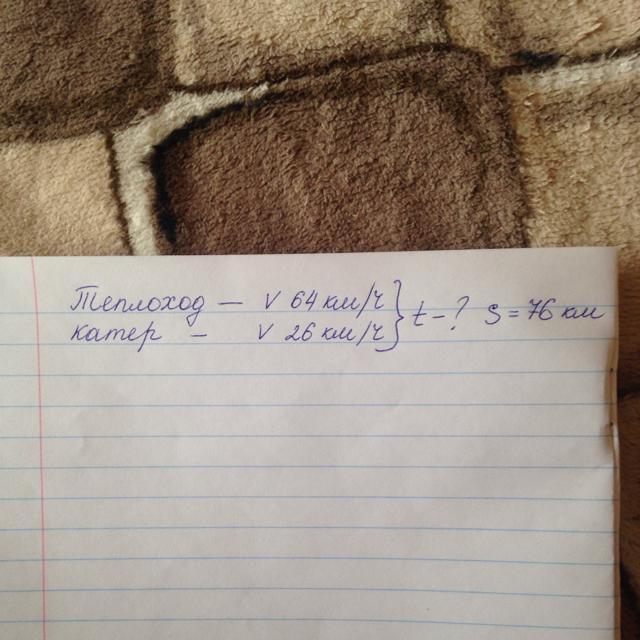 Теплоход — v 64 км/ч } t - ? S = 76 км
катер - v 26 км/ч